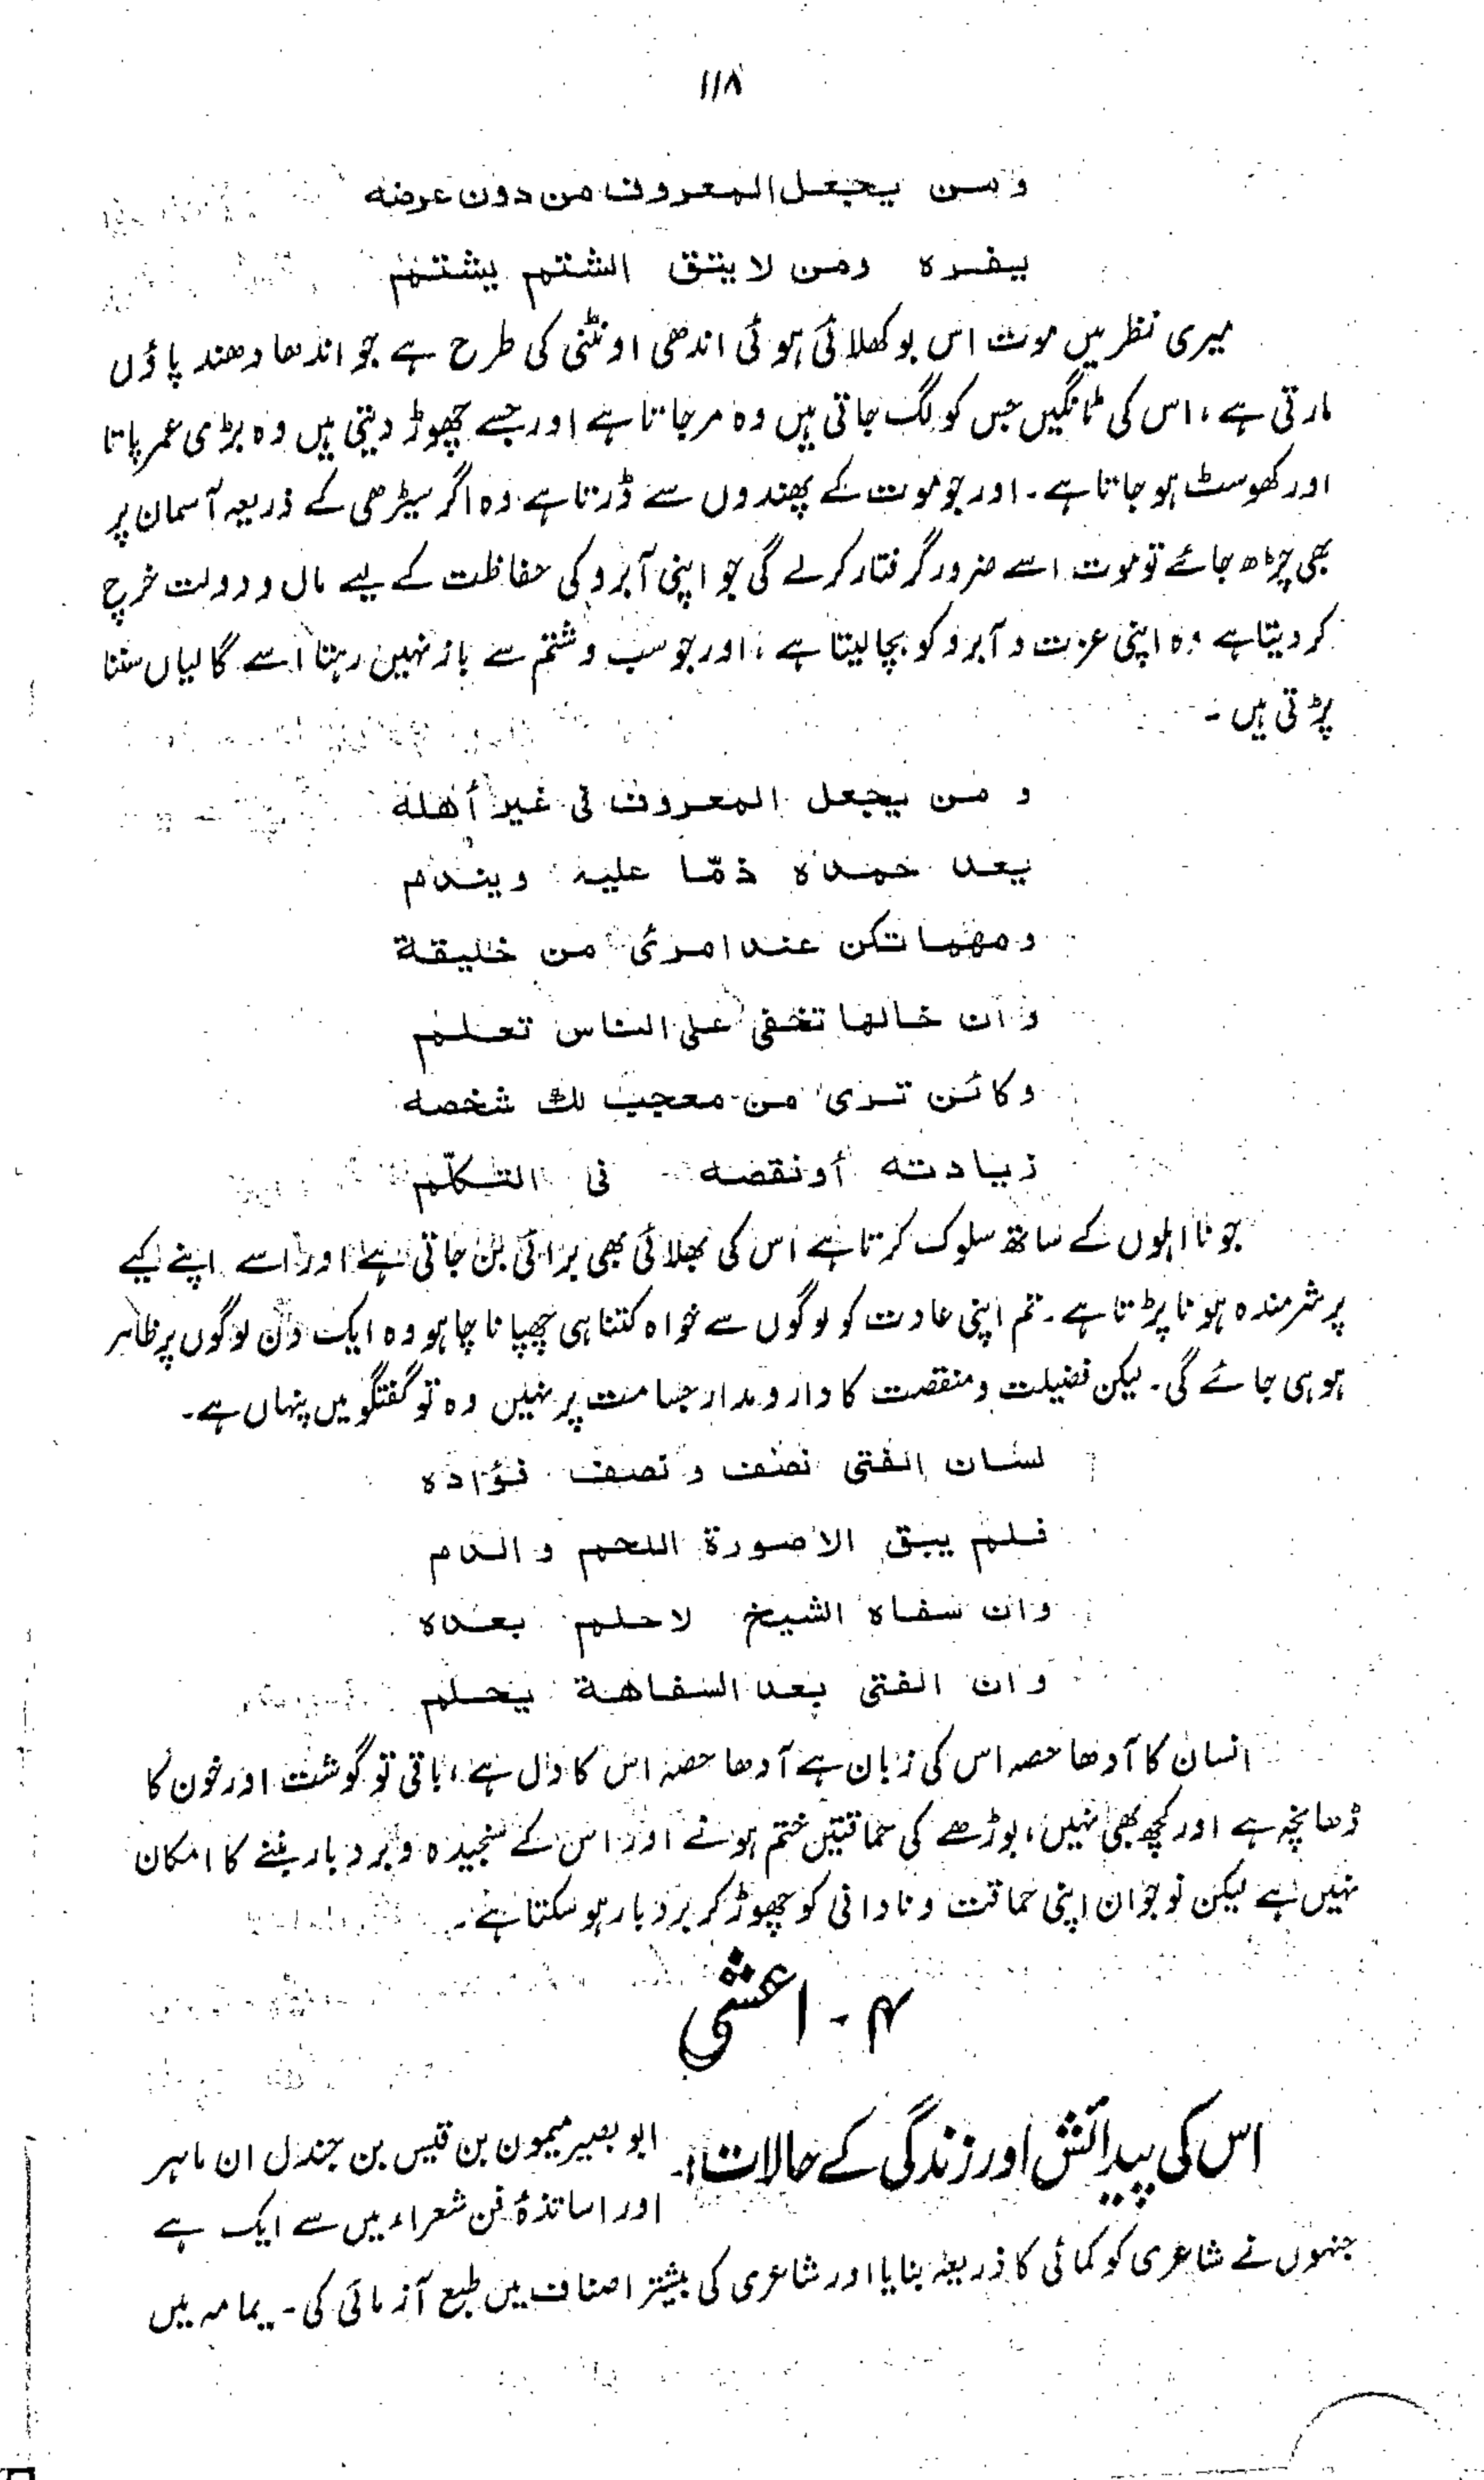 ۱۱۸
ومن يجعل المعروف من دون عرضه
يفره ومن لا يتق الشتم يشتم
میری نظر میں موت اس بوکھلائی ہوئی اندھی اونٹنی کی طرح ہے جو اندھا دھند پاؤں
مارتی ہے، اس کی ٹانگیں جس کو لگ جاتی ہیں وہ مرجاتا ہے اور جسے چھوڑ دیتی ہیں وہ بڑی عمر پاتا
اور کھوسٹ ہو جاتا ہے۔ اور جو موت کے پھندوں سے ڈرتا ہے وہ اگر سیڑھی کے ذریعہ آسمان پر
بھی چڑھ جائے تو موت اسے ضرور گرفتار کرلے گی جو اپنی آبرو کی حفاظت کے لیے مال و دولت خرچ
کردیتا ہے وہ اپنی عزت و آبرو کو بچالیتا ہے، اور جو سب و شتم سے باز نہیں رہتا اسے گالیاں سننا
پڑتی ہیں۔
و من يجعل المعروف فى غير أهله
يعد حمده ذمّا عليه ويندم
ومهما تكن عند امرئ من خليقة
وان خالها تخفى على الناس تعلم
وكائن ترى من معجب لك شخصه
زيادته أو نقصه فى التكلّم
جو نااہلوں کے ساتھ سلوک کرتا ہے اس کی بھلائی بھی برائی بن جاتی ہے اور اسے اپنے کیے
پر شرمندہ ہونا پڑتا ہے۔ تم اپنی عادت کو لوگوں سے خواہ کتنا ہی چھپانا چاہو وہ ایک دن لوگوں پر ظاہر
ہو ہی جائے گی۔ لیکن فضیلت و منقصت کا دارومدار جسامت پر نہیں وہ تو گفتگو میں پنہاں ہے۔
لسان الفتى نصف و نصف فؤاده
فلم يبق الا صورة اللحم و الدم
وان سفاه الشيخ لا حلم بعده
وان الفتى بعد السفاهة يحلم
انسان کا آدھا حصہ اس کی زبان ہے آدھا حصہ اس کا دل ہے، باقی تو گوشت اور خون کا
ڈھانچہ ہے اور کچھ بھی نہیں، بوڑھے کی حماقتیں ختم ہونے اور اس کے سنجیدہ و بردبار بننے کا امکان
نہیں ہے لیکن نوجوان اپنی حماقت و نادانی کو چھوڑ کر بردبار ہو سکتا ہے۔
۴ - اعشی
اس کی پیدائش اور زندگی کے حالات:۔ ابو بصیر میمون بن قیس بن جندل ان ماہر
اور اساتذۂ فن شعراء میں سے ایک ہے
جنہوں نے شاعری کو کمائی کا ذریعہ بنایا اور شاعری کی بیشتر اصناف میں طبع آزمائی کی۔ یمامہ میں